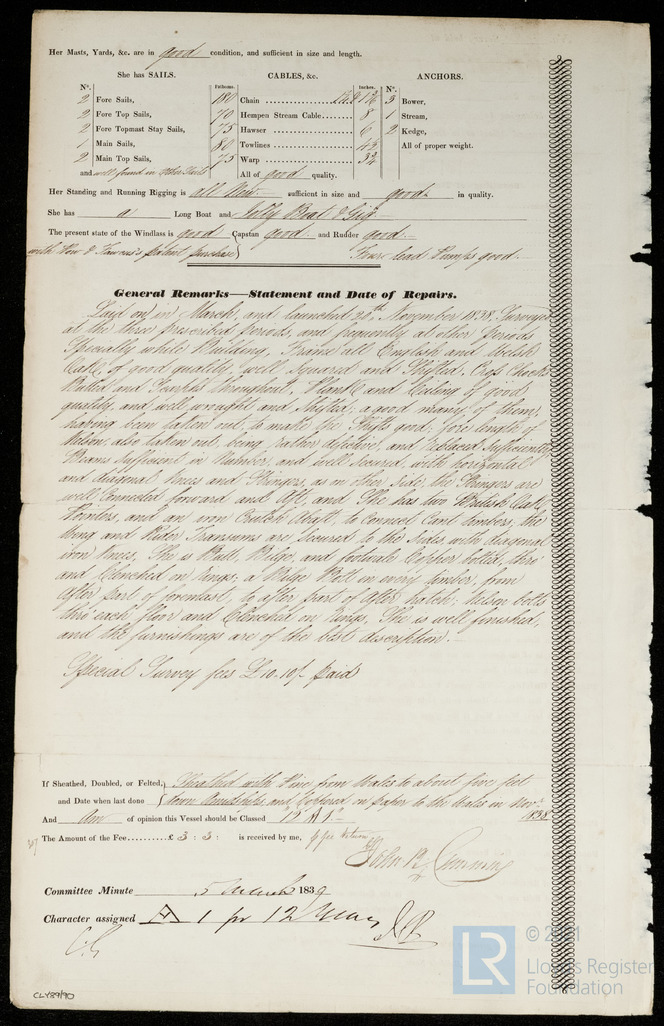 Her Masts, Yards, &c. are in good condition, and sufficient in size and length.
She has SAILS. CABLES, &c. ANCHORS.
Nº. Fathoms. Inches. Nº.
2 Fore Sails, 180 Chain 1 3 Bower,
2 Fore Top Sails, 70 Hempen Stream Cable 8 1 Stream,
2 Fore Topmast Stay Sails, 75 Hawser 6 2 Kedge,
1 Main Sails, 80 Towlines 4½ All of proper weight.
2 Main Top Sails, 75 Warp 3½
and well found in other Sails All of good quality.
Her Standing and Running Rigging is all New sufficient in size and good in quality.
She has a Long Boat and Jolly Boat & Gig
The present state of the Windlass is good Capstan good and Rudder good.
with patent purchase Four lead Pumps good.
General Remarks—Statement and Date of Repairs.
Laid on in March, and launched 20th November 1838. Surveyed
at the three prescribed periods, and frequently at other periods
Specially while Building, Frame all English and Welsh
Oak, of good quality, well Squared and Shifted, Chocks
Butted and throughout, Plank and Ceiling of good
quality, and well wrought and Shifted; a good many of them,
having been taken out, to make the Shifts good; fore length of
Kelson, also taken out, being rather defective, and replaced Sufficiently
Beams Sufficient in Number, and well secured, with horizontal
and diagonal Knees and Stringers, as on other Side, the Stringers are
well Connected forward and Aft, and She has two British Oak
Pointers, and an iron Crutch Abaft, to Connect Cant timbers, the
Wing and Rider Transoms are Secured to the Sides, with diagonal
iron Knees, She is Butt, Bilge, and footwale Copper bolted, thro'
and Clenched on rings; a Bilge Bolt in every timber, from
after part of foremast, to after part of after hatch; Kelson bolts
thro' each floor and Clenched on rings, She is well finished,
and the furnishings are of the best description.
Special Survey fees £10.10/- paid
If Sheathed, Doubled, or Felted, Sheathed with Pine from Wales to about five feet
and Date when last done down Amidships, and Coppered on paper to the Wales in Novr. 1838
And Am of opinion this Vessel should be Classed 12 A 1
The Amount of the Fee £ 3 : 3 : is received by me,
John Cumming
Committee Minute 5 March 1839
Character assigned A 1 for 12 Years
CLY89/90
LR
Lloyd's Register
Foundation